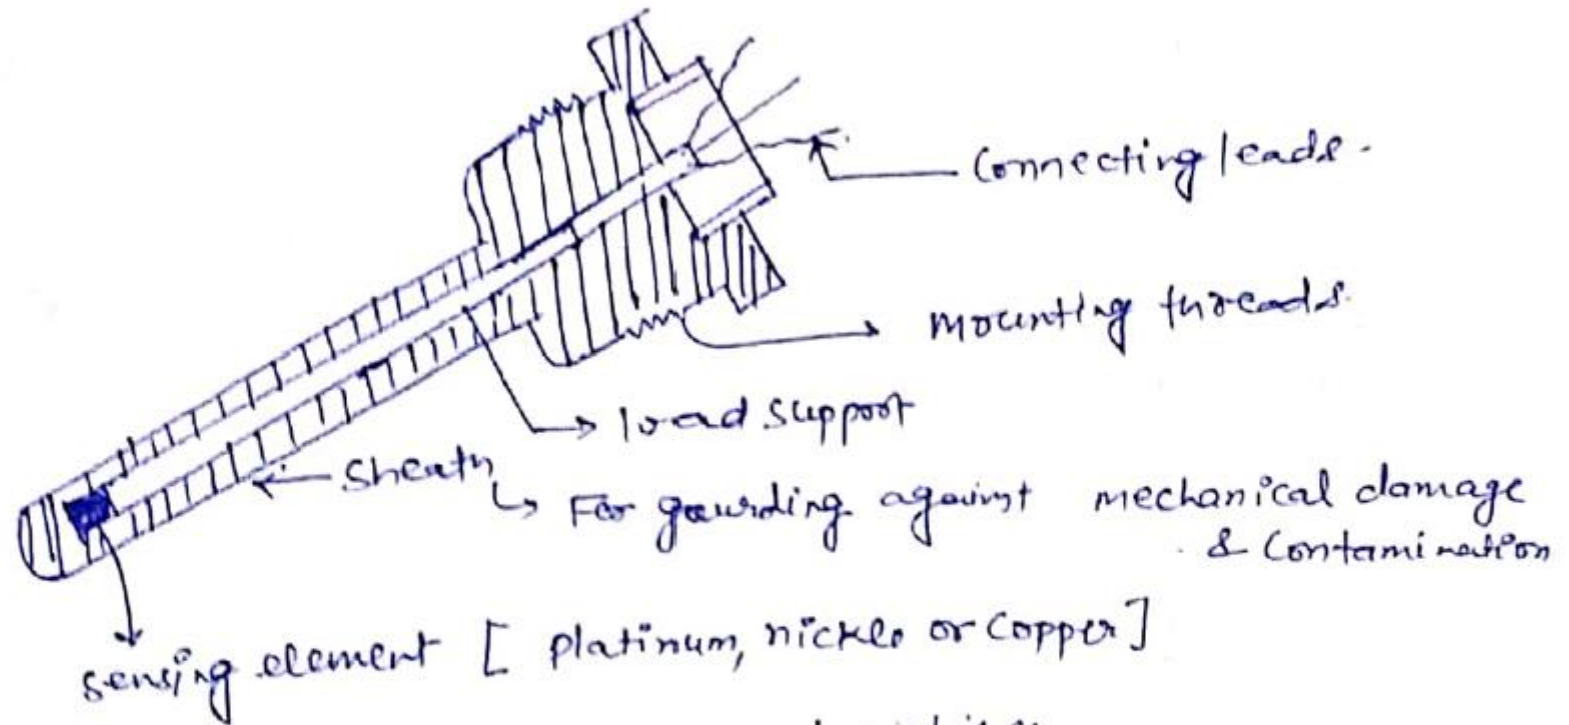 Connecting leads.
Mounting threads.
load support
Sheath
For gaurding against mechanical damage
& Contamination
sensing element [ Platinum, nickle or Copper ]